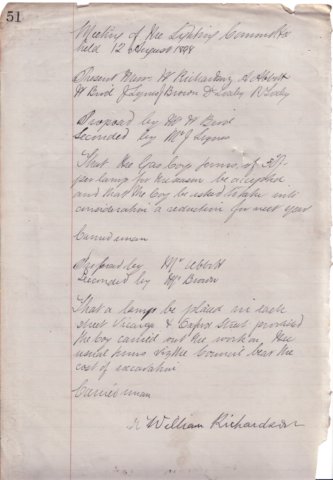 51
Meeting of the Lighting Committee
held 12 August 1898
Present Messrs W Richardson, A Abbott
W Bird J Lynes J Brown D Leaby R Leaby
Proposed by Mr W Bird
Seconded by Mr J Lynes
That the Gas Coys terms of 37/-
per lamp for the season be accepted
and that the Coy be asked to take into
consideration a reduction for next year
Carried unan
Proposed by Mr Abbott
Seconded by Mr Brown
That a lamp be placed in each
street Vicarage & Oxford street provided
the Coy carried out the work on the
usual terms viz the Council bear the
cost of excavation
Carried unan
William Richardson